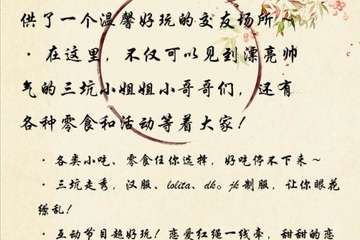 供了一个温馨好玩的交友场所~
· 在这里，不仅可以见到漂亮帅
气的三坑小姐姐小哥哥们，还有
各种零食和活动等着大家！
· 各类小吃、零食任你选择，好吃停不下来~
· 三坑走秀，汉服、lolita、dk。jk制服，让你眼花
缭乱！
· 互动节目超好玩！恋爱红绳一线牵，甜甜的恋